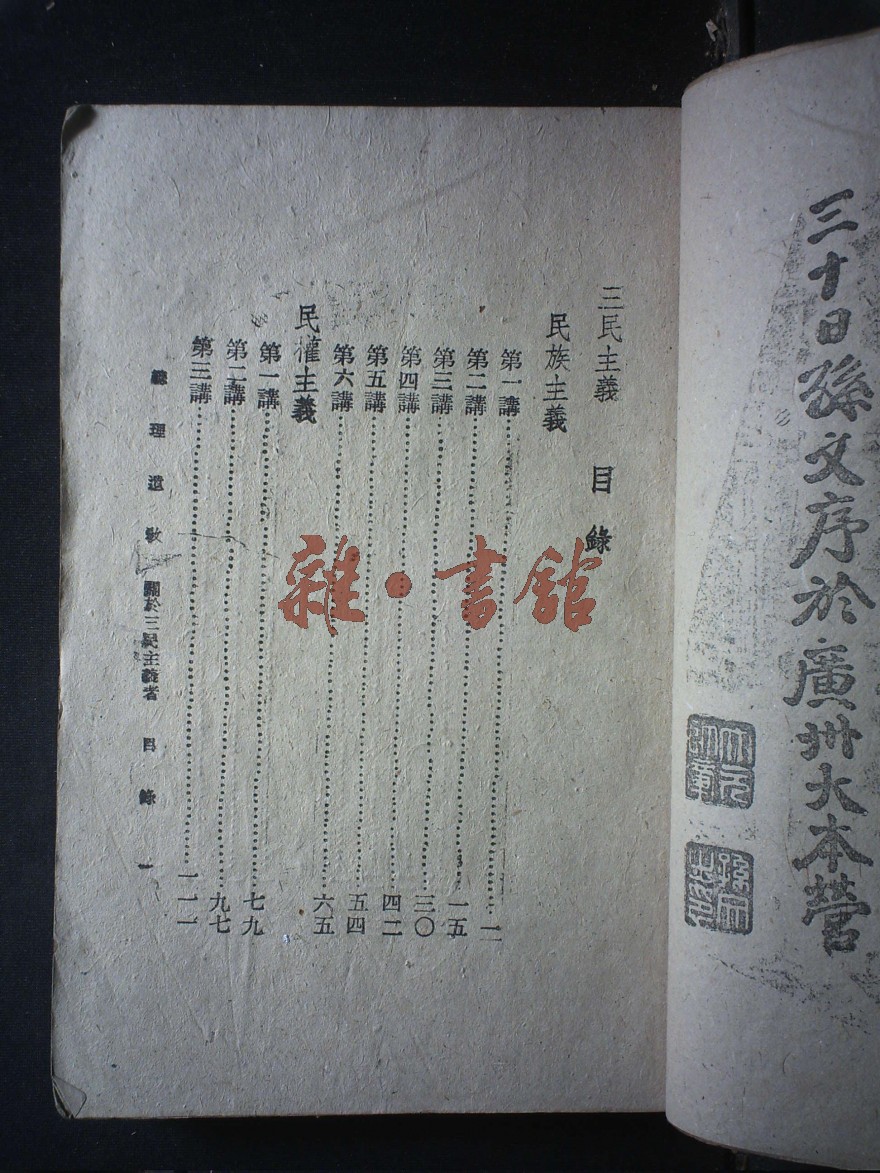 三十日孫文序於廣州大本營
大元帥章
孫文之印
三民主義 目錄
民族主義
第一講……一
第二講……一五
第三講……三〇
第四講……四二
第五講……五四
第六講……六五
民權主義
第一講……七九
第二講……九七
第三講……一一一
總理遺教 關於三民主義者 目錄 一
雜·書館